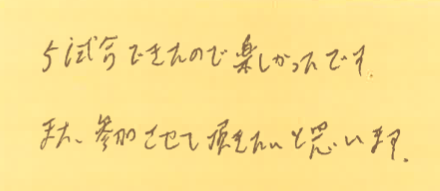 5試合できたので楽しかったです.
また、参加させて頂きたいと思います.